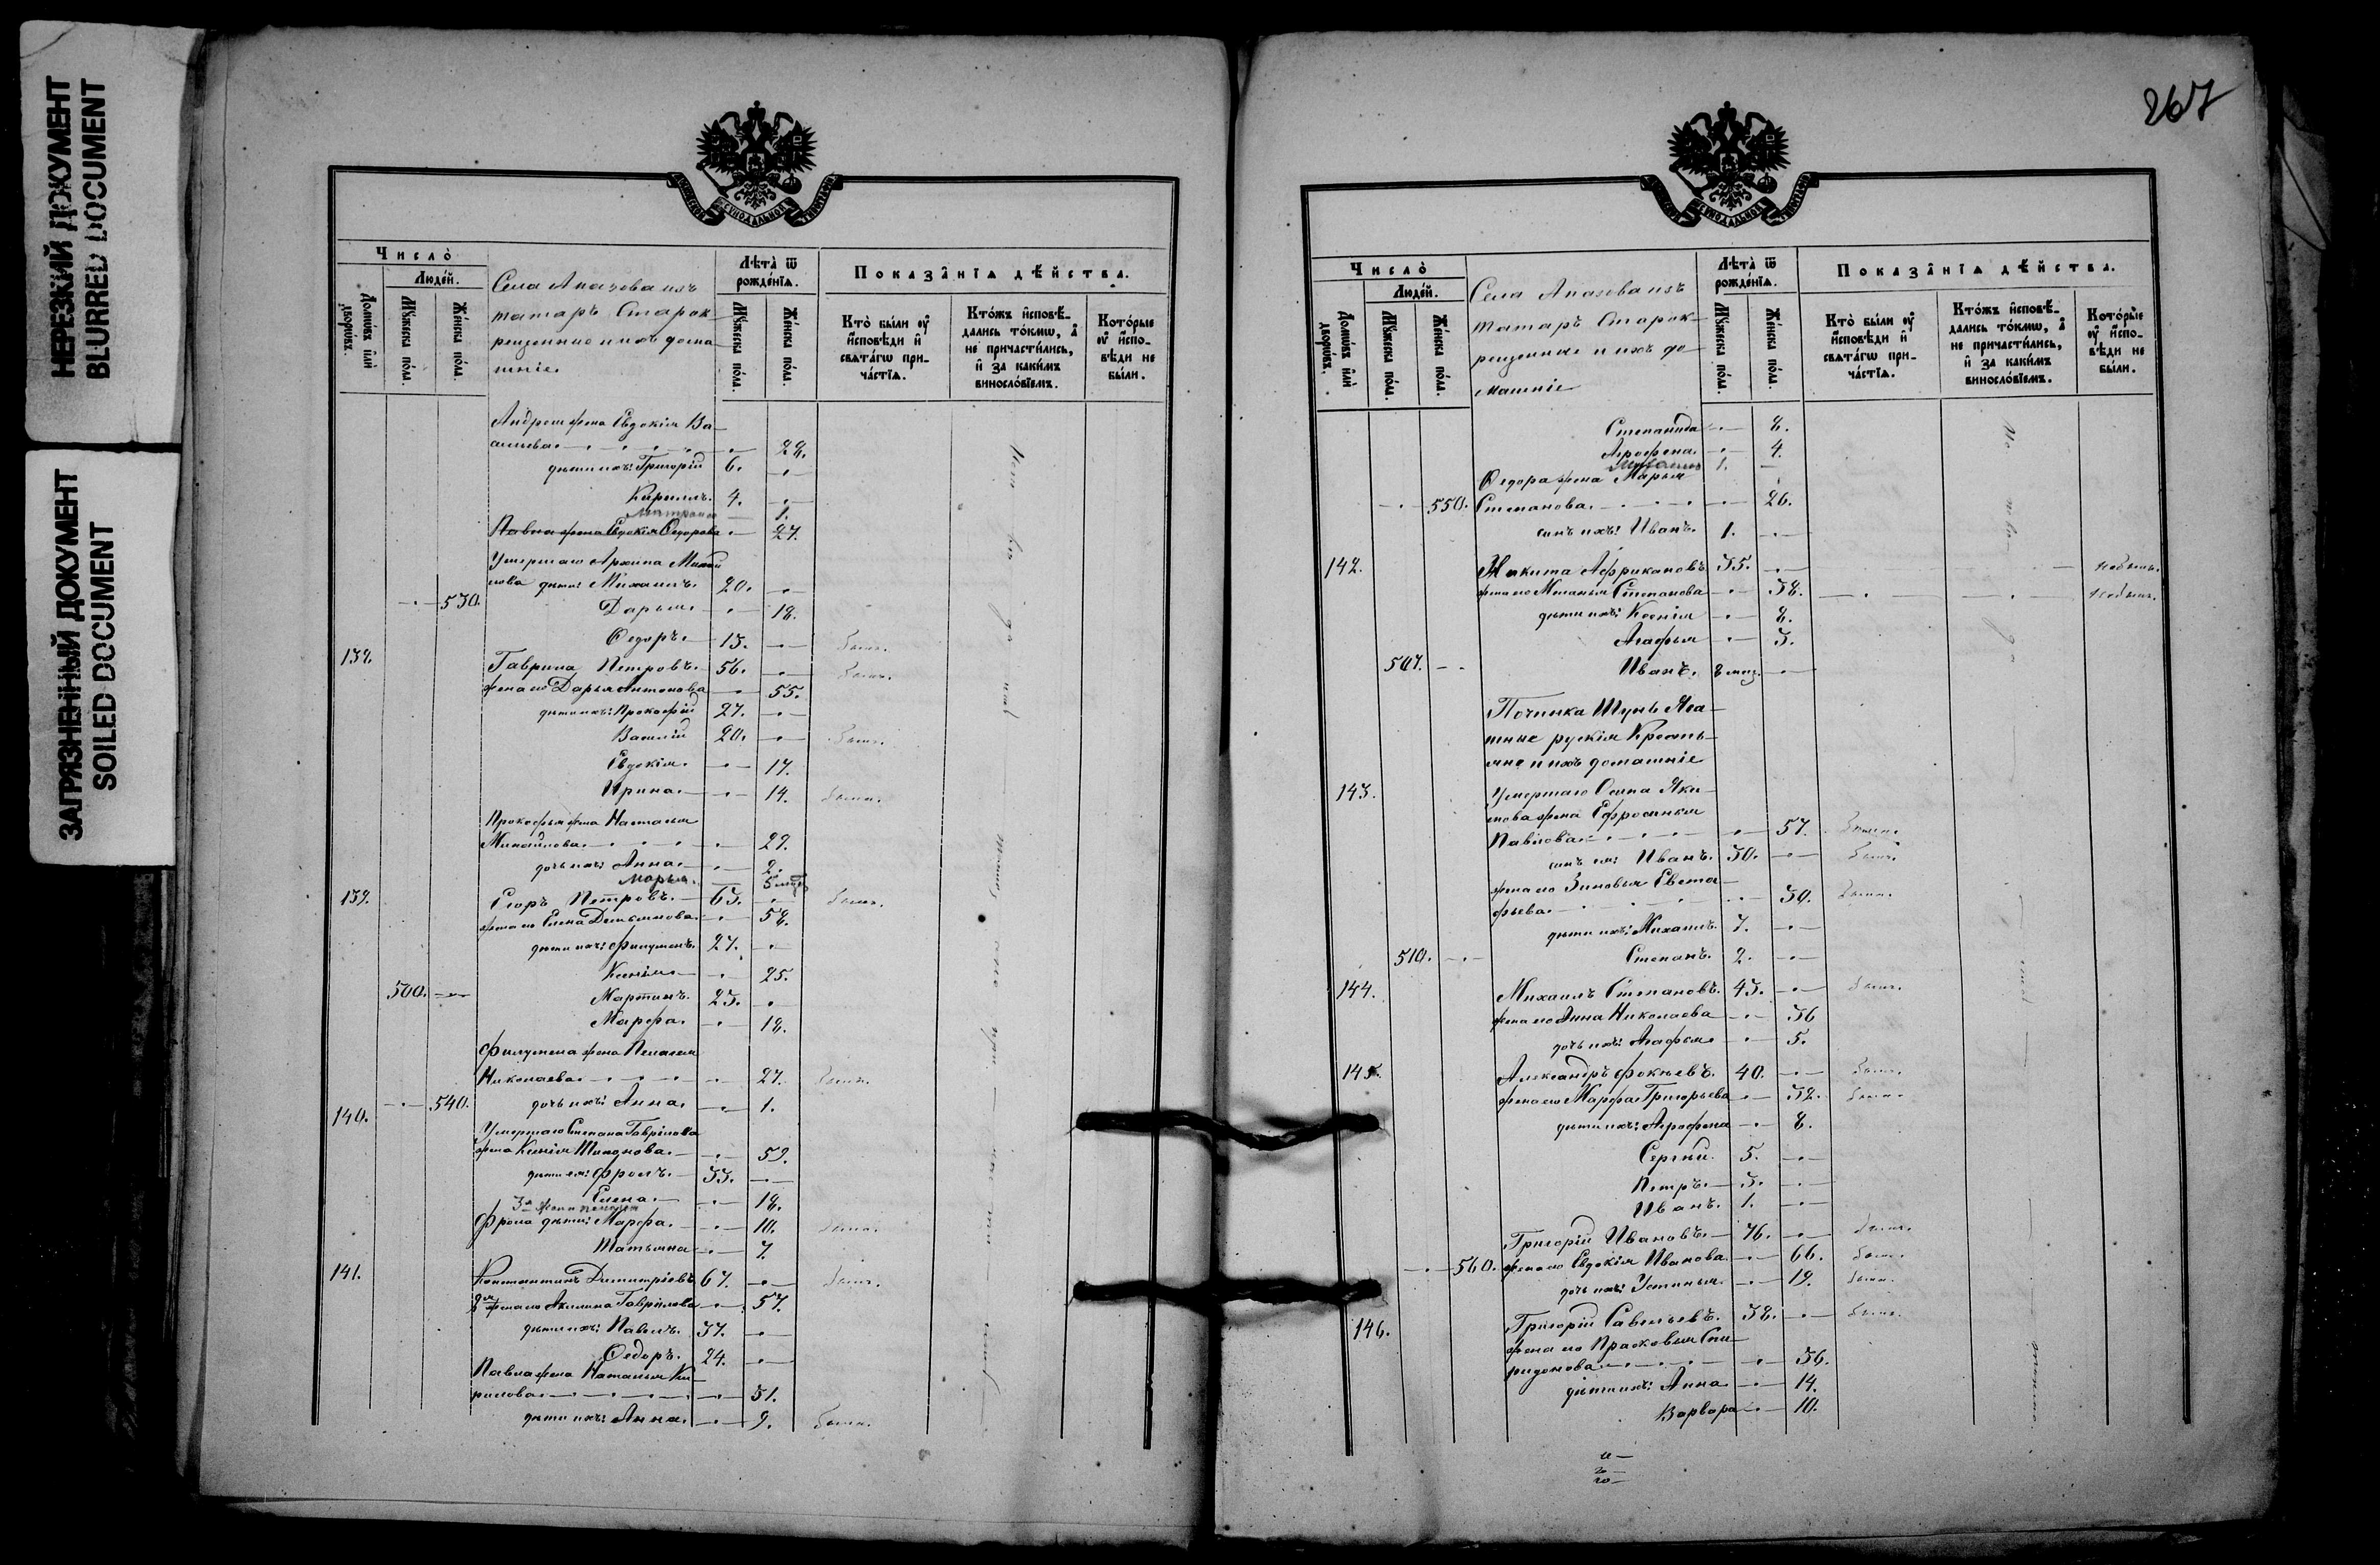 НЕРЕЗКИЙ ДОКУМЕНТ
BLURRED DOCUMENT
ЗАГРЯЗНЕННЫЙ ДОКУМЕНТ
SOILED DOCUMENT
МОСКОВСКОЙ СѴНОДАЛЬНОЙ ТИПОГРАФІИ
Число̀
Домѡ́въ и҆лѝ дворѡ́въ.
Люде́й.
Мꙋ́жеска по́ла.
Же́нска по́ла.
Села Апазова изъ
татаръ Старок-
рещенные и ихъ дома
шніе.
Лѣ́та ѿ рожде́нїѧ.
Мꙋ́жеска по́ла.
Же́нска по́ла.
Показа̑нїѧ дѣ́йства.
Кто̀ бы́ли ᲂу҆ и҆сповѣ́ди и҆ свѧта́гѡ прича́стїѧ.
Кто́жъ и҆сповѣ́дались то́кмѡ, а҆ не причасти́лись, и҆ за каки́мъ винослові́емъ.
Кото́рые ᲂу҆ и҆сповѣ́ди не бы́ли.
Андрея жена Евдокія Ва-
сильева 28.
дѣти ихъ: Григорій 6.
Кирилъ. 4.
Матрона 1.
Павла жена Евдокія Ѳедорова 27.
Умершаго Архипа Михай
лова дѣти: Михаилъ. 20.
530. Дарья 18.
Ѳедоръ. 13. былъ.
138. Гаврила Петровъ. 56. былъ.
жена его Дарья Антонова 55.
дѣти ихъ: Прокофій 27.
Василій 20. былъ.
Евдокія. 17.
Ирина. 14. была.
Прокофья жена Наталья
Михайлова. 29.
дочь ихъ: Анна. 2.
Марья. 5 мѣс
139. Егоръ Петровъ. 63. былъ.
жена его Елена Демьянова. 58.
дѣти ихъ: Филуменъ. 27.
Ксенія 25.
500. Мартинъ. 23.
Марфа. 18.
Филумена жена Пелагея
Николаева. 27. была.
540. дочь ихъ: Анна. 1.
140. Умершаго Степана Гаврилова
жена Ксенія Тихонова. 59.
дѣти ея: Фролъ. 33.
Елена. 18.
Фрола дѣти: Марфа. 10. была.
Татьяна 7.
141. Константинъ Димитріевъ 67. былъ.
2я жена его Акилина Гаврилова 57.
дѣти ихъ: Павелъ. 37.
Ѳедоръ. 24.
Павла жена Наталья Ки-
рилова 31.
дѣти ихъ: Анна. 9. была.
267
МОСКОВСКОЙ СѴНОДАЛЬНОЙ ТИПОГРАФІИ
Число̀
Домѡ́въ и҆лѝ дворѡ́въ.
Люде́й.
Мꙋ́жеска по́ла.
Же́нска по́ла.
Села Апазова изъ
татаръ Старок-
рещенные и ихъ до-
машніе
Лѣ́та ѿ рожде́нїѧ.
Мꙋ́жеска по́ла.
Же́нска по́ла.
Показа̑нїѧ дѣ́йства.
Кто̀ бы́ли ᲂу҆ и҆сповѣ́ди и҆ свѧта́гѡ прича́стїѧ.
Кто́жъ и҆сповѣ́дались то́кмѡ, а҆ не причасти́лись, и҆ за каки́мъ винослові́емъ.
Кото́рые ᲂу҆ и҆сповѣ́ди не бы́ли.
Степанида 8.
Агрофена 4.
1.
Ѳедора жена Марья
550. Степанова. 26.
сынъ ихъ: Иванъ. 1.
142. Никита Африкановъ 35. не былъ.
жена его Меланья Степанова 38. не была.
дѣти ихъ: Ксенія 8.
Агафья 3.
507. Иванъ. 8 мѣс.
Починка Шунь Яга-
тные рускія Кресть-
яне и ихъ домашніе
143. Умершаго Осипа Яки-
мова жена Ефросинья
Павлова 57. была.
сынъ ея: Иванъ. 30. былъ.
жена его Зиновья Евста-
фьева. 30. была.
дѣти ихъ: Михаилъ. 7.
510. Степанъ. 2.
144. Михаилъ Степановъ. 43. былъ.
жена его Анна Николаева 36
дочь ихъ: Агафья 5.
145. Александръ Фокѣевъ. 40. былъ.
жена его Марфа Григорьева 38. была.
дѣти ихъ: Агрофена 8.
Сергѣй. 5.
Петръ. 3.
Иванъ. 1.
Григорій Ивановъ. 76. былъ.
560. жена его Евдокія Иванова. 66. была.
дочь ихъ: Устинья. 19. была.
146. Григорій Савельевъ. 38. былъ.
жена его Прасковья Спи-
ридонова 36.
дѣти ихъ: Анна 14.
Варвара 10.